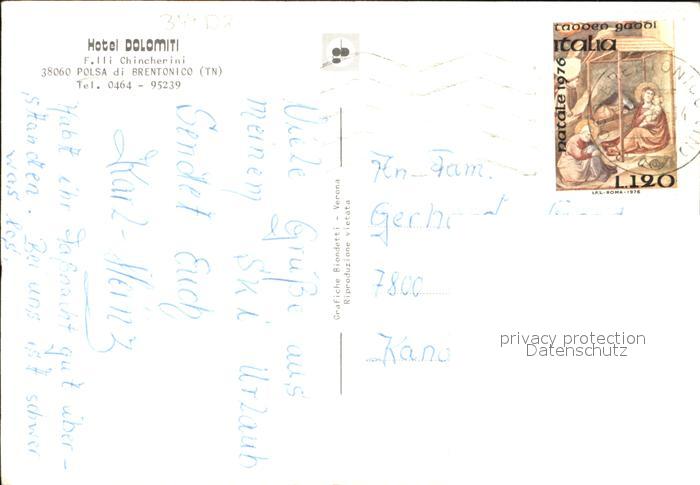 34+D2
Hotel DOLOMITI
F.lli Chincherini
38060 POLSA di BRENTONICO (TN)
Tel. 0464 - 95239
Viele Grüße aus
meinem Ski Urlaub
sendet Euch
Karl-Heinz
Habt ihr Faßnacht gut über-
standen. Bei uns ist schwer
was los.
Grafiche Biondetti - Verona
Riproduzione vietata
taddeo gaddi
italia
natale 1976
L.120
I.P.S. - ROMA - 1976
An Fam.
Gerhard
7800
privacy protection
Datenschutz